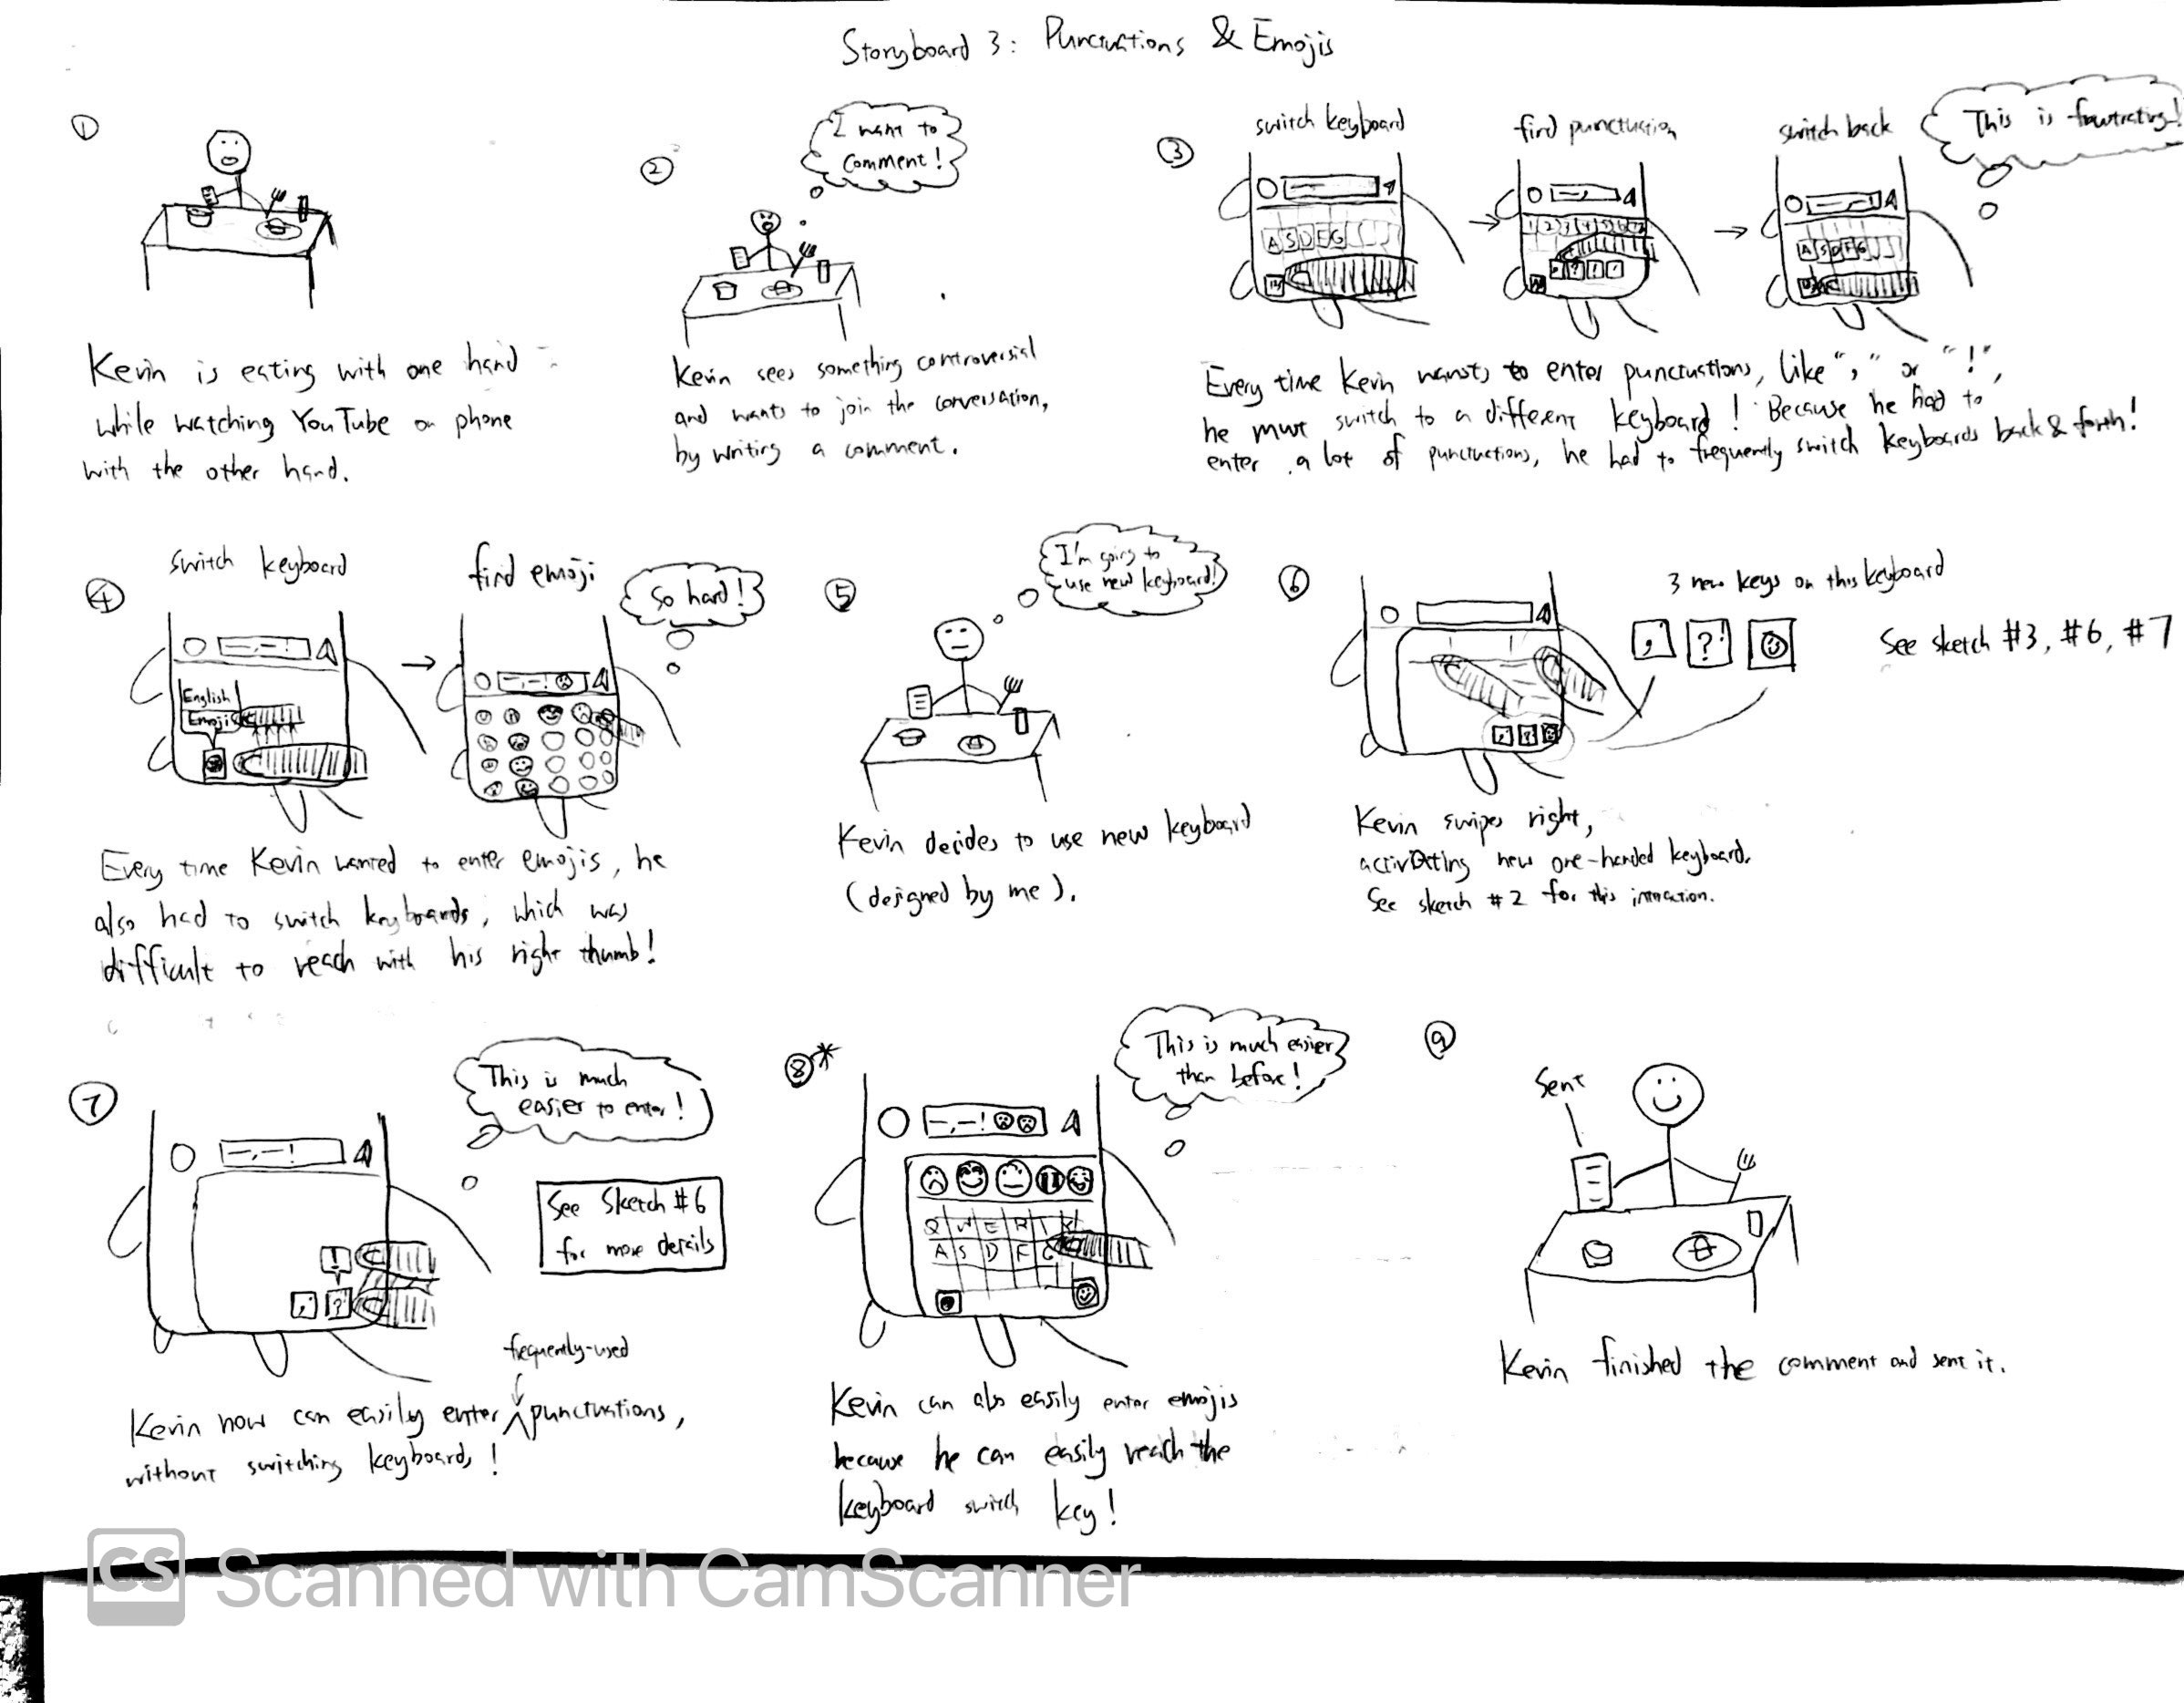 Storyboard 3: Punctuations & Emojis
①
Kevin is eating with one hand
while watching YouTube on phone
with the other hand.
②
I want to
comment!
Kevin sees something controversial
and wants to join the conversation,
by writing a comment.
③
switch keyboard
find punctuation
switch back
This is frustrating!
A S D F G
1 2 3 4 5 6 7
A S D F G
Every time Kevin wants to enter punctuations, like "," or "!",
he must switch to a different keyboard! Because he had to
enter a lot of punctuctions, he had to frequently switch keyboards back & forth!
④
switch keyboard
find emoji
So hard!
English
Emoji
Every time Kevin wanted to enter emojis, he
also had to switch keyboards, which was
difficult to reach with his right thumb!
⑤
I'm going to
use new keyboard!
Kevin decides to use new keyboard
(designed by me).
⑥
3 new keys on this keyboard
See sketch #3, #6, #7
Kevin swipes right,
activating new one-handed keyboard.
See sketch #2 for this interaction.
⑦
This is much
easier to enter!
See Sketch #6
for more details
frequently-used
Kevin now can easily enter ^ punctuations,
without switching keyboards!
⑧*
This is much easier
than before!
Q W E R T
A S D F G
Kevin can also easily enter emojis
because he can easily reach the
keyboard switch key!
⑨
Sent
Kevin finished the comment and sent it.
CS Scanned with CamScanner